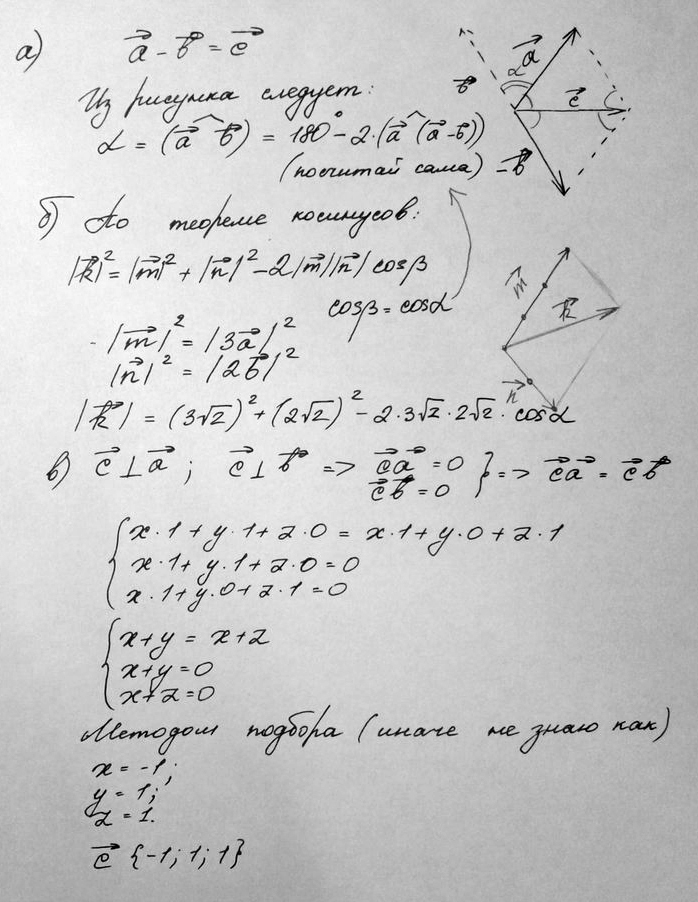 а) a⃗ - b⃗ = c⃗
Из рисунка следует:
α = (a⃗ ^ b⃗) = 180° - 2·(a⃗ ^ (a⃗-b⃗))
(посчитай сама)
b⃗
α
a⃗
c⃗
-b⃗
б) По теореме косинусов:
|k⃗|² = |m⃗|² + |n⃗|² - 2|m⃗||n⃗| cosβ
cosβ = cosα
|m⃗|² = |3a⃗|²
|n⃗|² = |2b⃗|²
|k⃗| = (3√2)² + (2√2)² - 2·3√2·2√2· cosα
m⃗
k⃗
n⃗
в) c⃗ ⊥ a⃗ ; c⃗ ⊥ b⃗ => c⃗a⃗ = 0
c⃗b⃗ = 0 } => c⃗a⃗ = c⃗b⃗
{ x·1 + y·1 + z·0 = x·1 + y·0 + z·1
x·1 + y·1 + z·0 = 0
x·1 + y·0 + z·1 = 0
{ x+y = x+z
x+y=0
x+z=0
Методом подбора (иначе не знаю как)
x = -1;
y = 1;
z = 1.
c⃗ {-1; 1; 1}